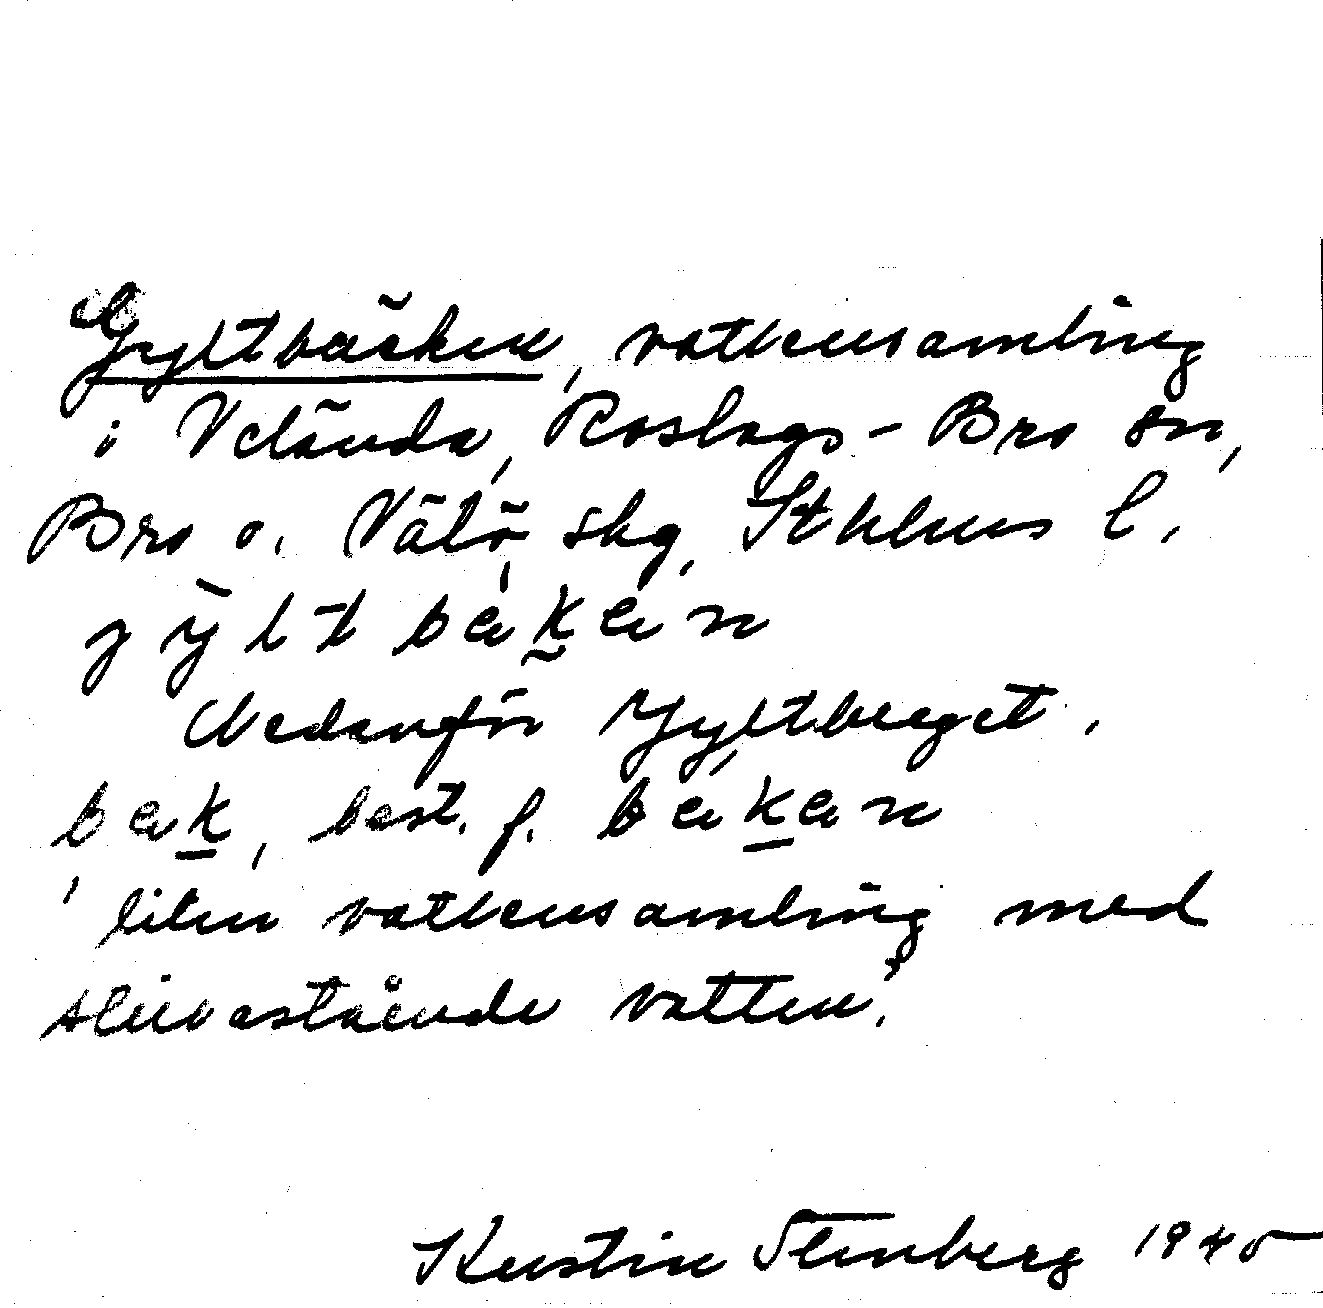 Gyltbäcken, vattensamling
i Vlända, Roslags-Bro sn,
Bro o. Vätö skg, Sthlms l.
jyltbäkän
Nedanför Gyltberget.
bäk, best. f. bäkän
'liten vattensamling med
stillastående vatten'.
Kerstin Stenberg 1945